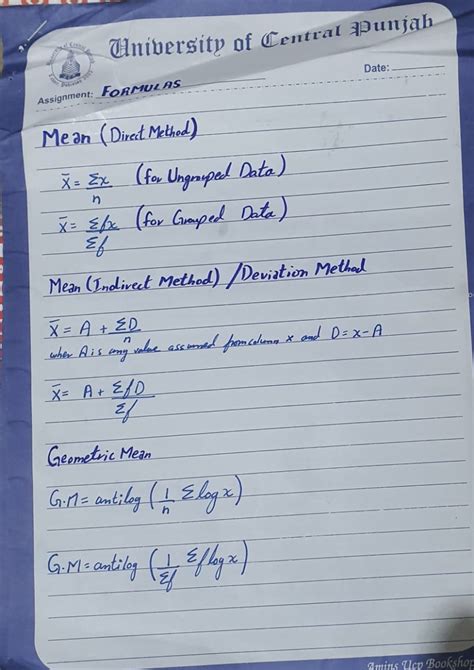 University of Central Punjab
Date:
Assignment: FORMULAS
Mean (Direct Method)
X̄ = Σx/n (for Ungrouped Data)
X̄ = Σfx/Σf (for Grouped Data)
Mean (Indirect Method) / Deviation Method
X̄ = A + ΣD/n
wher A is any value assumed from column x and D = x - A
X̄ = A + ΣfD/Σf
Geometric Mean
G.M = antilog (1/n Σ log x)
G.M = antilog (1/Σf Σ f log x)
Amins Ucp Bookshop